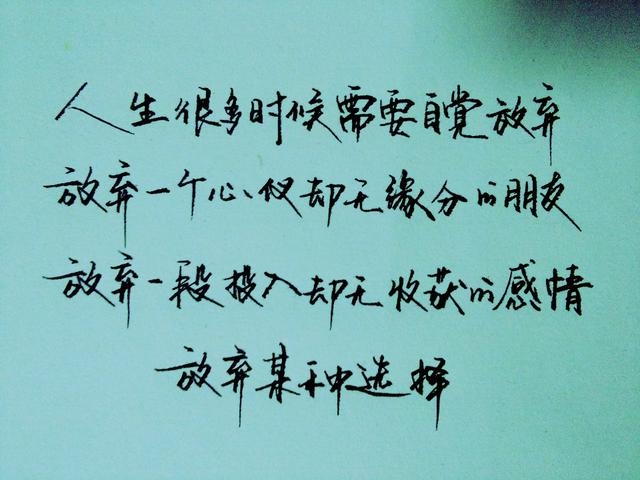 人生很多时候需要自觉放弃
放弃一个心仪却无缘分的朋友
放弃一段投入却无收获的感情
放弃某种选择